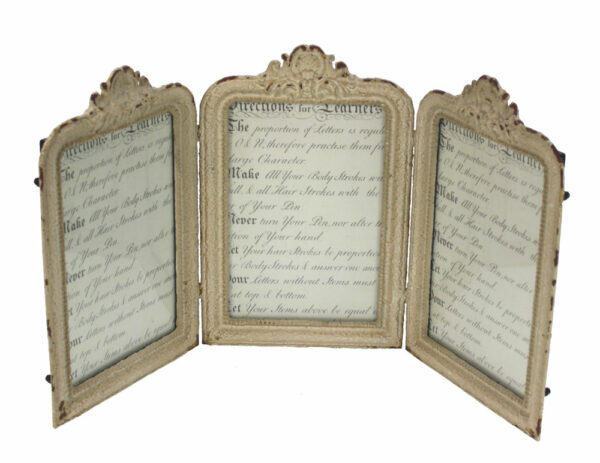 irections for Learners
The proportion of Letters is regul
O & N, therefore practise them f
large Character.
Make All Your Body Strokes wi
ull, & all Hair Strokes with the
of Your Pen
Never turn Your Pen, nor alter t
ition of Your hand.
et Your hair Strokes be proportion
r Body Strokes & answer one anot
our Letters without Items must
at top & bottom.
et Your Items above be equal
irections for Learners
The proportion of Letters is regula
O & N, therefore practise them for
large Character.
Make All Your Body Strokes
ull, & all Hair Strokes with the
of Your Pen
Never turn Your Pen, nor alter th
ition of Your hand
et Your hair Strokes be proportion
r Body Strokes & answer one anot
our Letters without Items must
at top & bottom.
et Your Items above be equal
irections for Learner
The proportion of Letters is reg
O & N, therefore practise them
large Character.
Make All Your Body Strokes w
ull, & all Hair Strokes with the
of Your Pen
Never turn Your Pen, nor alter
ition of Your hand
et Your hair Strokes be proport
r Body Strokes & answer one
our Letters without Items must
at top & bottom.
et Your Items above be equal